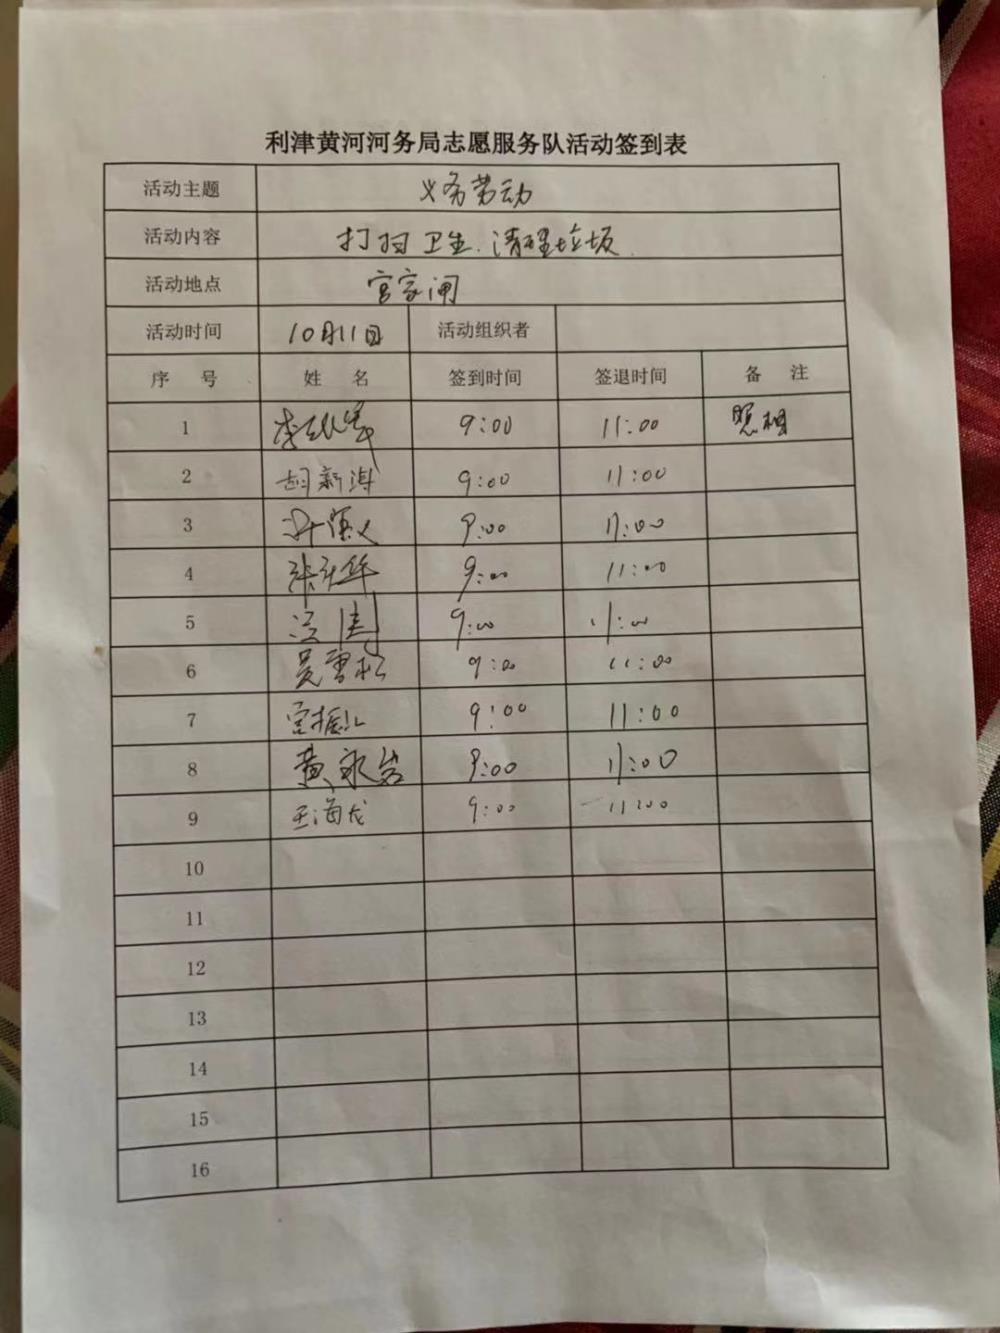 利津黄河河务局志愿服务队活动签到表
活动主题 义务劳动
活动内容 打扫卫生.清理垃圾.
活动地点 宫家闸
活动时间 10月11日 活动组织者
序 号 姓 名 签到时间 签退时间 备 注
1 9:00 11:00 照相
2 胡新海 9:00 11:00
3 9:00 11:00
4 9:00 11:00
5 9:00 11:00
6 吴雪松 9:00 11:00
7 9:00 11:00
8 黄永岩 9:00 11:00
9 王海龙 9:00 11:00
10
11
12
13
14
15
16